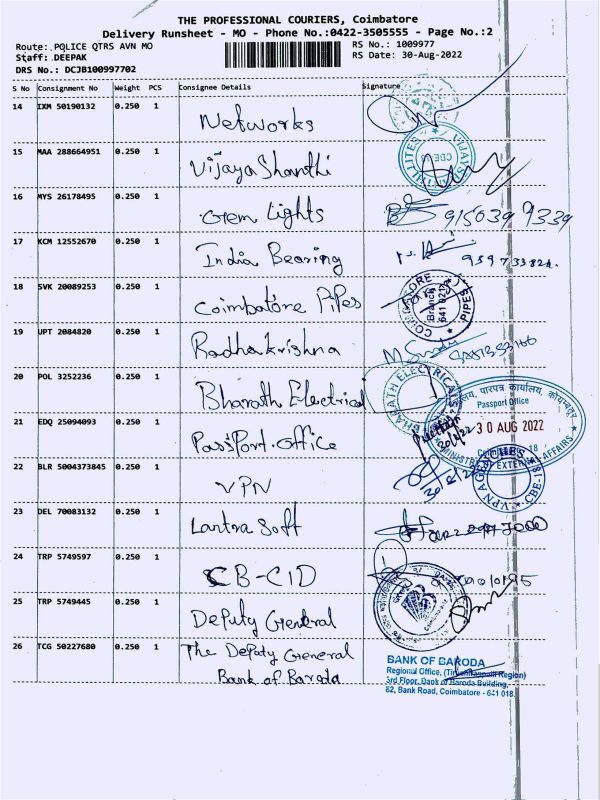 THE PROFESSIONAL COURIERS, Coimbatore
Delivery Runsheet - MO - Phone No.:0422-3505555 - Page No.:2
Route: POLICE QTRS AVN MO
RS No.: 1009977
Staff: DEEPAK
RS Date: 30-Aug-2022
DRS No.: DCJB100997702
S No Consignment No Weight PCS Consignee Details Signature
14 IXM 50190132 0.250 1 Networks
15 MAA 288664951 0.250 1 Vijaya Shanthi
16 MYS 26178495 0.250 1 Gem Lights
17 KCM 12552670 0.250 1 India Bearing
18 SVK 20089253 0.250 1 Coimbatore Pipes
COIMBATORE PIPES
Branch
19 UPT 2084820 0.250 1 Radhakrishna
20 POL 3252236 0.250 1 Bharath Electrical
BHARATH ELECTRICALS
21 EDQ 25094093 0.250 1 Passport office
Passport Office
30 AUG 2022
MINISTRY OF EXTERNAL AFFAIRS
22 BLR 5004373845 0.250 1 VPN
VPN AGENCIES
CBE-18
23 DEL 70083132 0.250 1 Lantra Soft
24 TRP 5749597 0.250 1 CB-CID
25 TRP 5749445 0.250 1 Deputy General
26 TCG 50227680 0.250 1 The Deputy General
Bank of Baroda
BANK OF BARODA
Regional Office, (Tiruchirappalli Region)
3rd Floor, Bank of Baroda Building,
82, Bank Road, Coimbatore - 641 018.